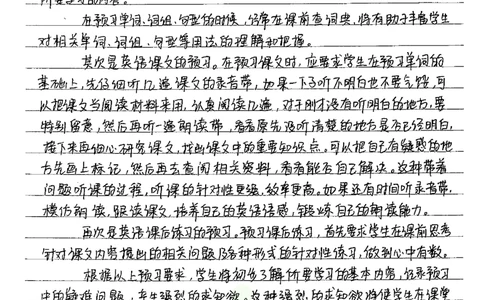 在预习单词、词组、句型的时候,经常在课前查词典,将有助于丰富学生
对相关单词、词组、句型等用法的理解和把握。
其次是英语课文的预习。在预习课文时,应要求学生在预习单词的
基础上,先仔细听几遍课文的录音带,如果一下子听不明白也不要气馁,可
以把课文当阅读材料来用,认真阅读几遍,对于刚才没有听明白的地方,要
特别留意,然后再听一遍朗读带,看看原先没听清楚的地方是否已经明白,
接下来再细心研究课文,找出课文中的重要知识点。可以把自己有疑惑的地
方先画上标记,然后再去查阅相关资料,看看能否自己解决。这种带着
问题听课的过程,听课的针对性更强,效率更高。如果还有时间听录音带,
模仿朗读,跟读课文,培养自己的英语语感,锻炼自己的朗读能力。
再次是英语课后练习的预习。预习课后练习,首先要求学生在课前思考
针对课文内容提出的相关问题及各种形式的针对性练习,做到心中有数。
根据以上预习要求,学生将初步了解所要学习的基本内容,纪录预习
中的疑难问题,产生强烈的求知欲。这种强烈的求知欲将使学生在课堂